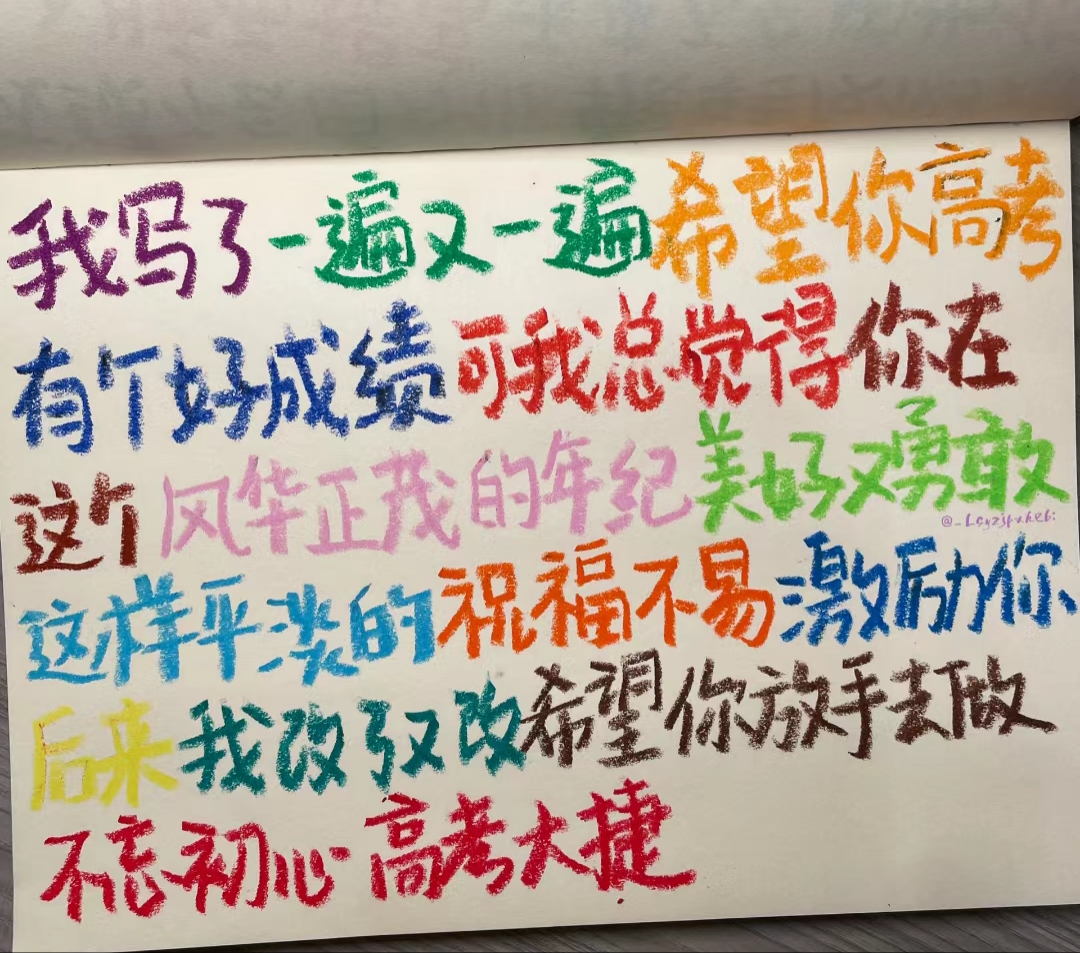 我写了一遍又一遍希望你高考
有个好成绩可我总觉得你在
这个风华正茂的年纪美好又勇敢
这样平淡的祝福不易激励你
后来我改了又改希望你放手去做
不忘初心高考大捷